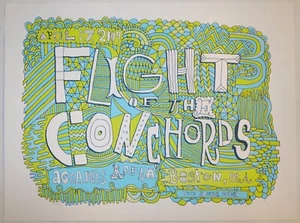 APRIL 17 2009
FLIGHT
OF THE
CONCHORDS
AGGANIS ARENA BOSTON, MA.